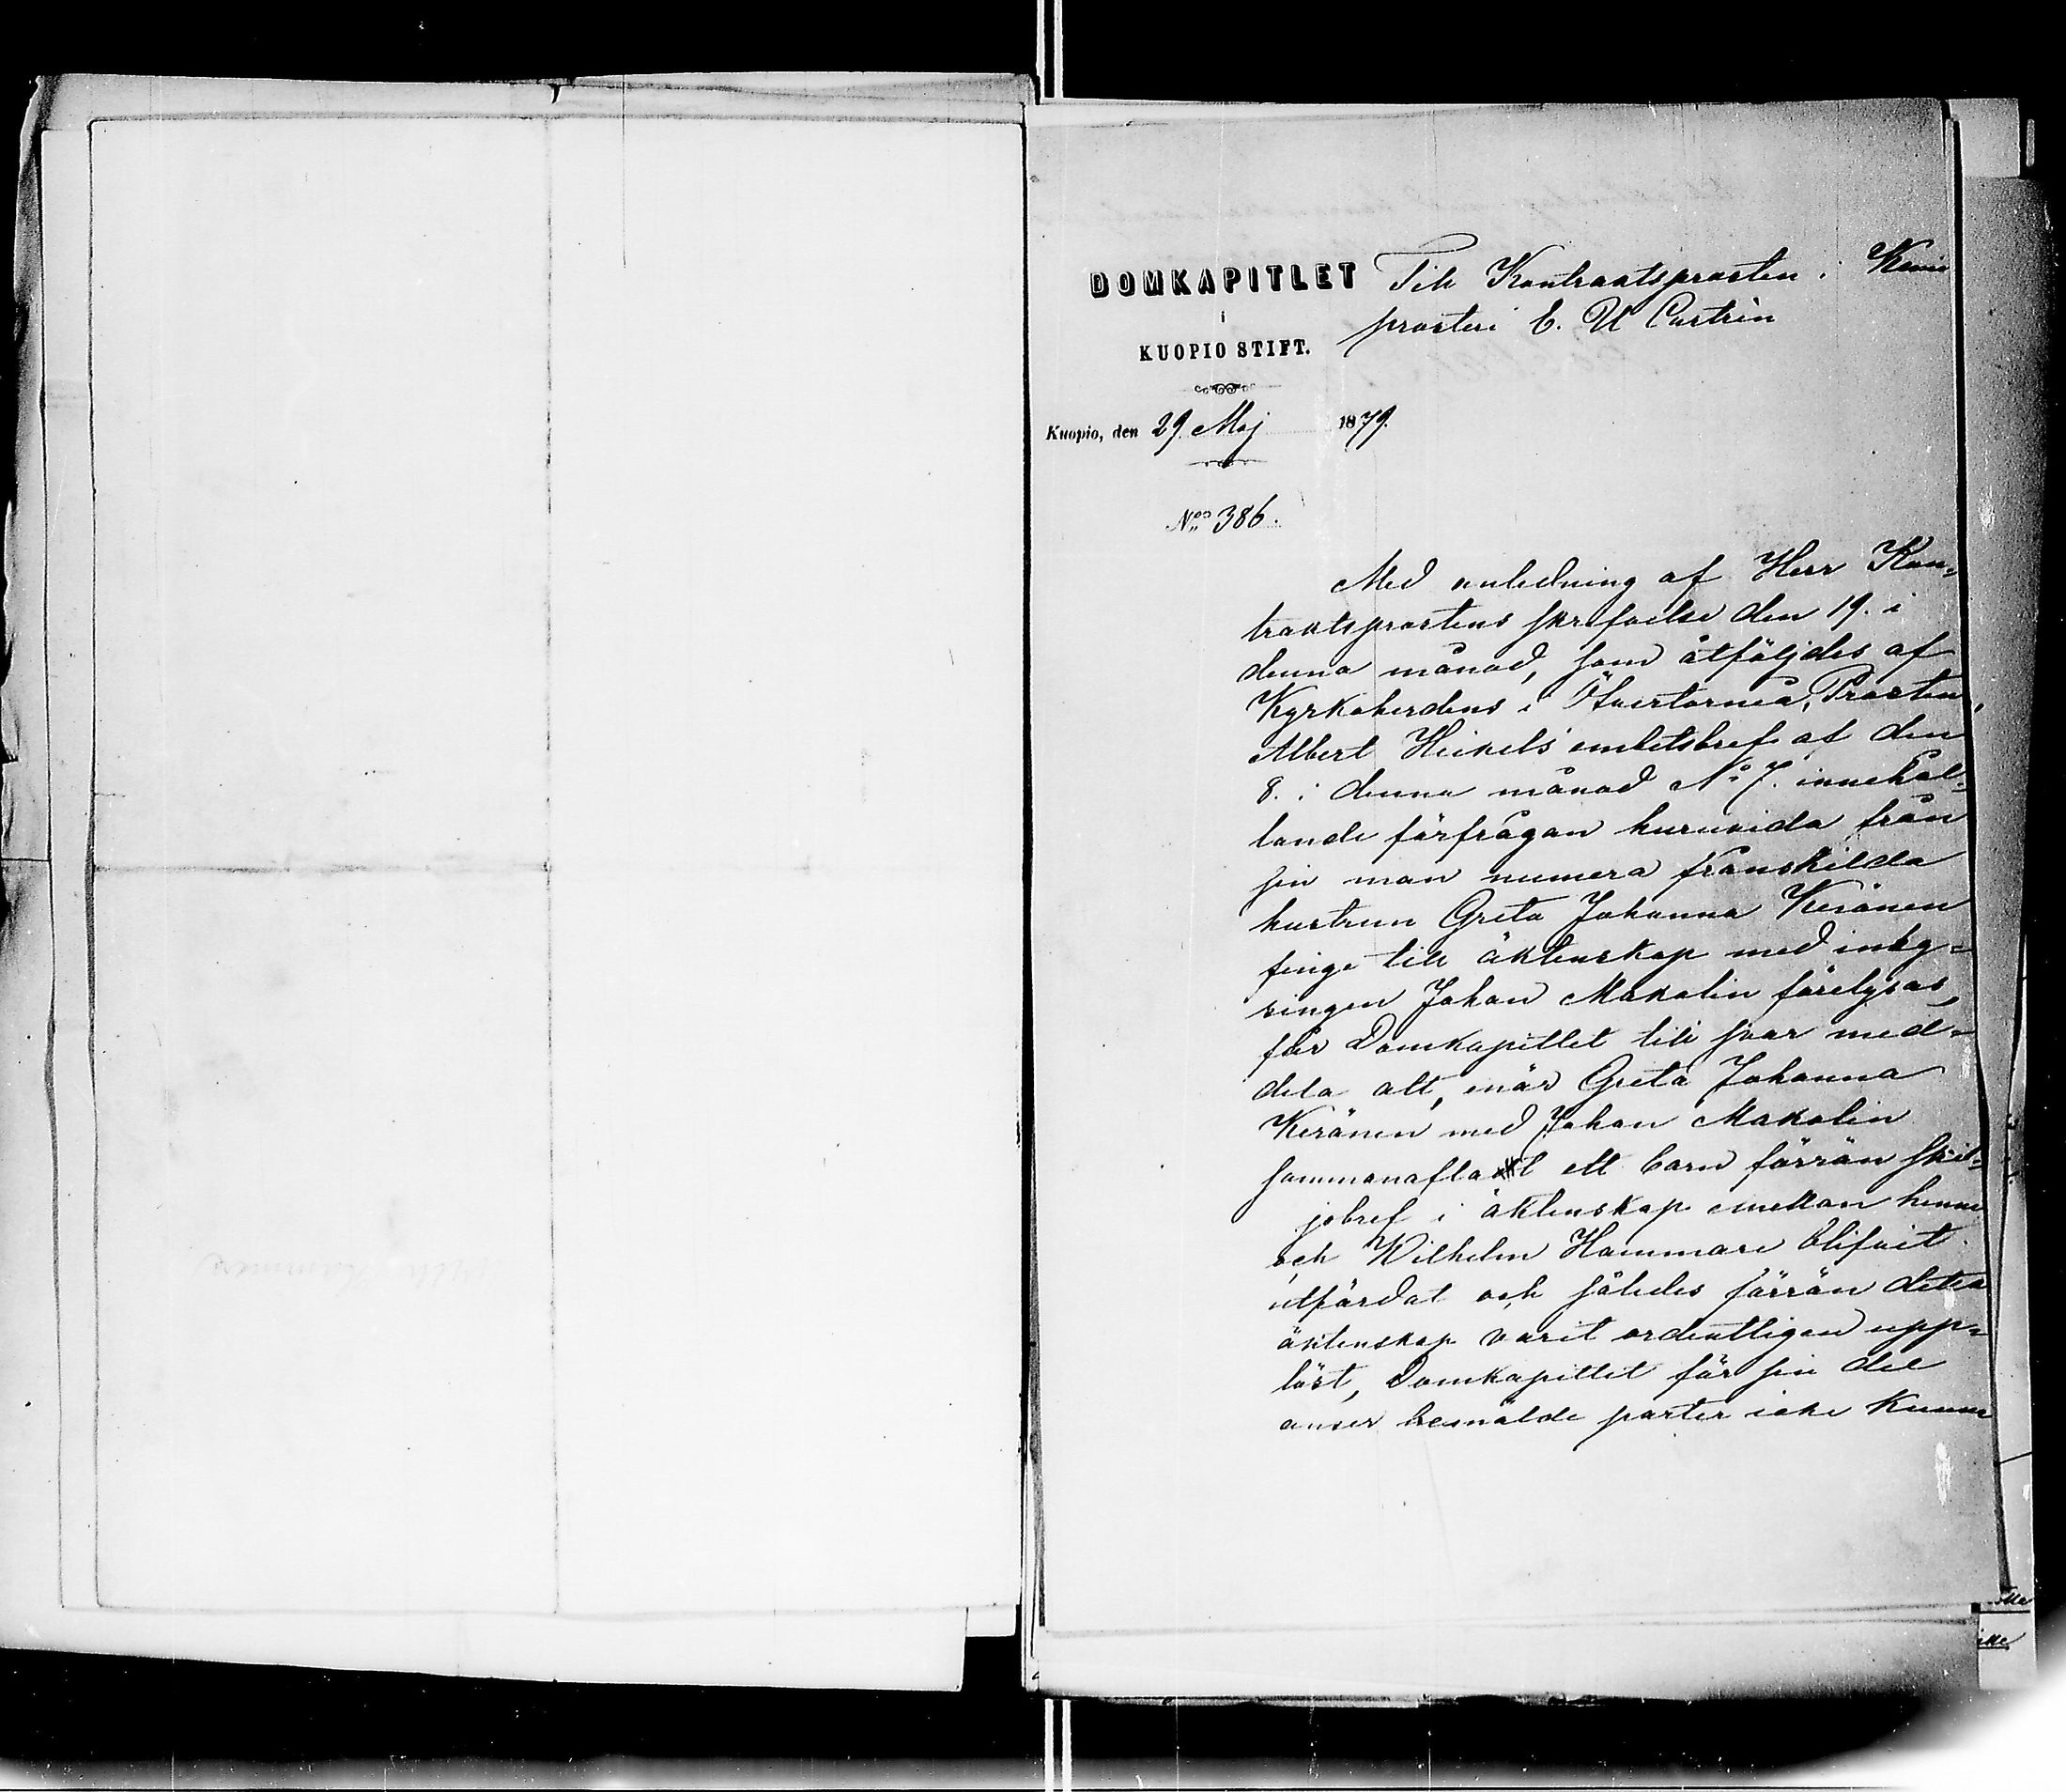 DOMKAPITLET
i
KUOPIO STIFT.
Kuopio, den 29. Maj 1879.
Nº 386.
Till Kontraktsprosten i Kemi
prosteri E. U Castrén
Med anledning af Herr Kon-
traktsprostens skrifvelse den 19. i
denna månad, som åtföljdes af
Kyrkoherdens i Öfvertorneå, Prosten,
Albert Heikels embetsbref af den
8. i denna månad Nº 7. innehål-
lande förfrågan huruvida från
sin man numera frånskilda
hustrun Greta Johanna Keränen
finge till äktenskap med inhy-
singen Johan Makalin förelysas,
får Domkapitlet till svar med-
dela att, enär Greta Johanna
Keränen med Johan Makalin
sammanaflat ett barn förrän skil-
jobref i äktenskap emellan henne
och Wilhelm Hammare blifvit
utfärdat och således förrän detta
äktenskap varit ordentligen upp-
löst, Domkapitlet för sin del
anser bemälde parter icke kunna